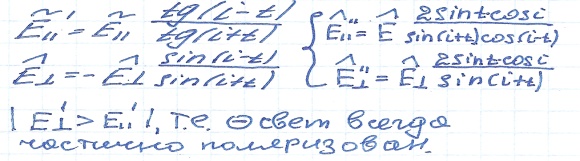 Ẽ∥' = Ẽ∥ tg(i-t)/tg(i+t) { Ê∥'' = Ê 2sint·cosi/sin(i+t)cos(i-t)
Ê⊥' = - Ê⊥ sin(i-t)/sin(i+t) Ê⊥'' = Ê⊥ 2sint·cosi/sin(i+t)
|E⊥' > E∥'|, т.е. ⊖ свет всегда
частично поляризован.